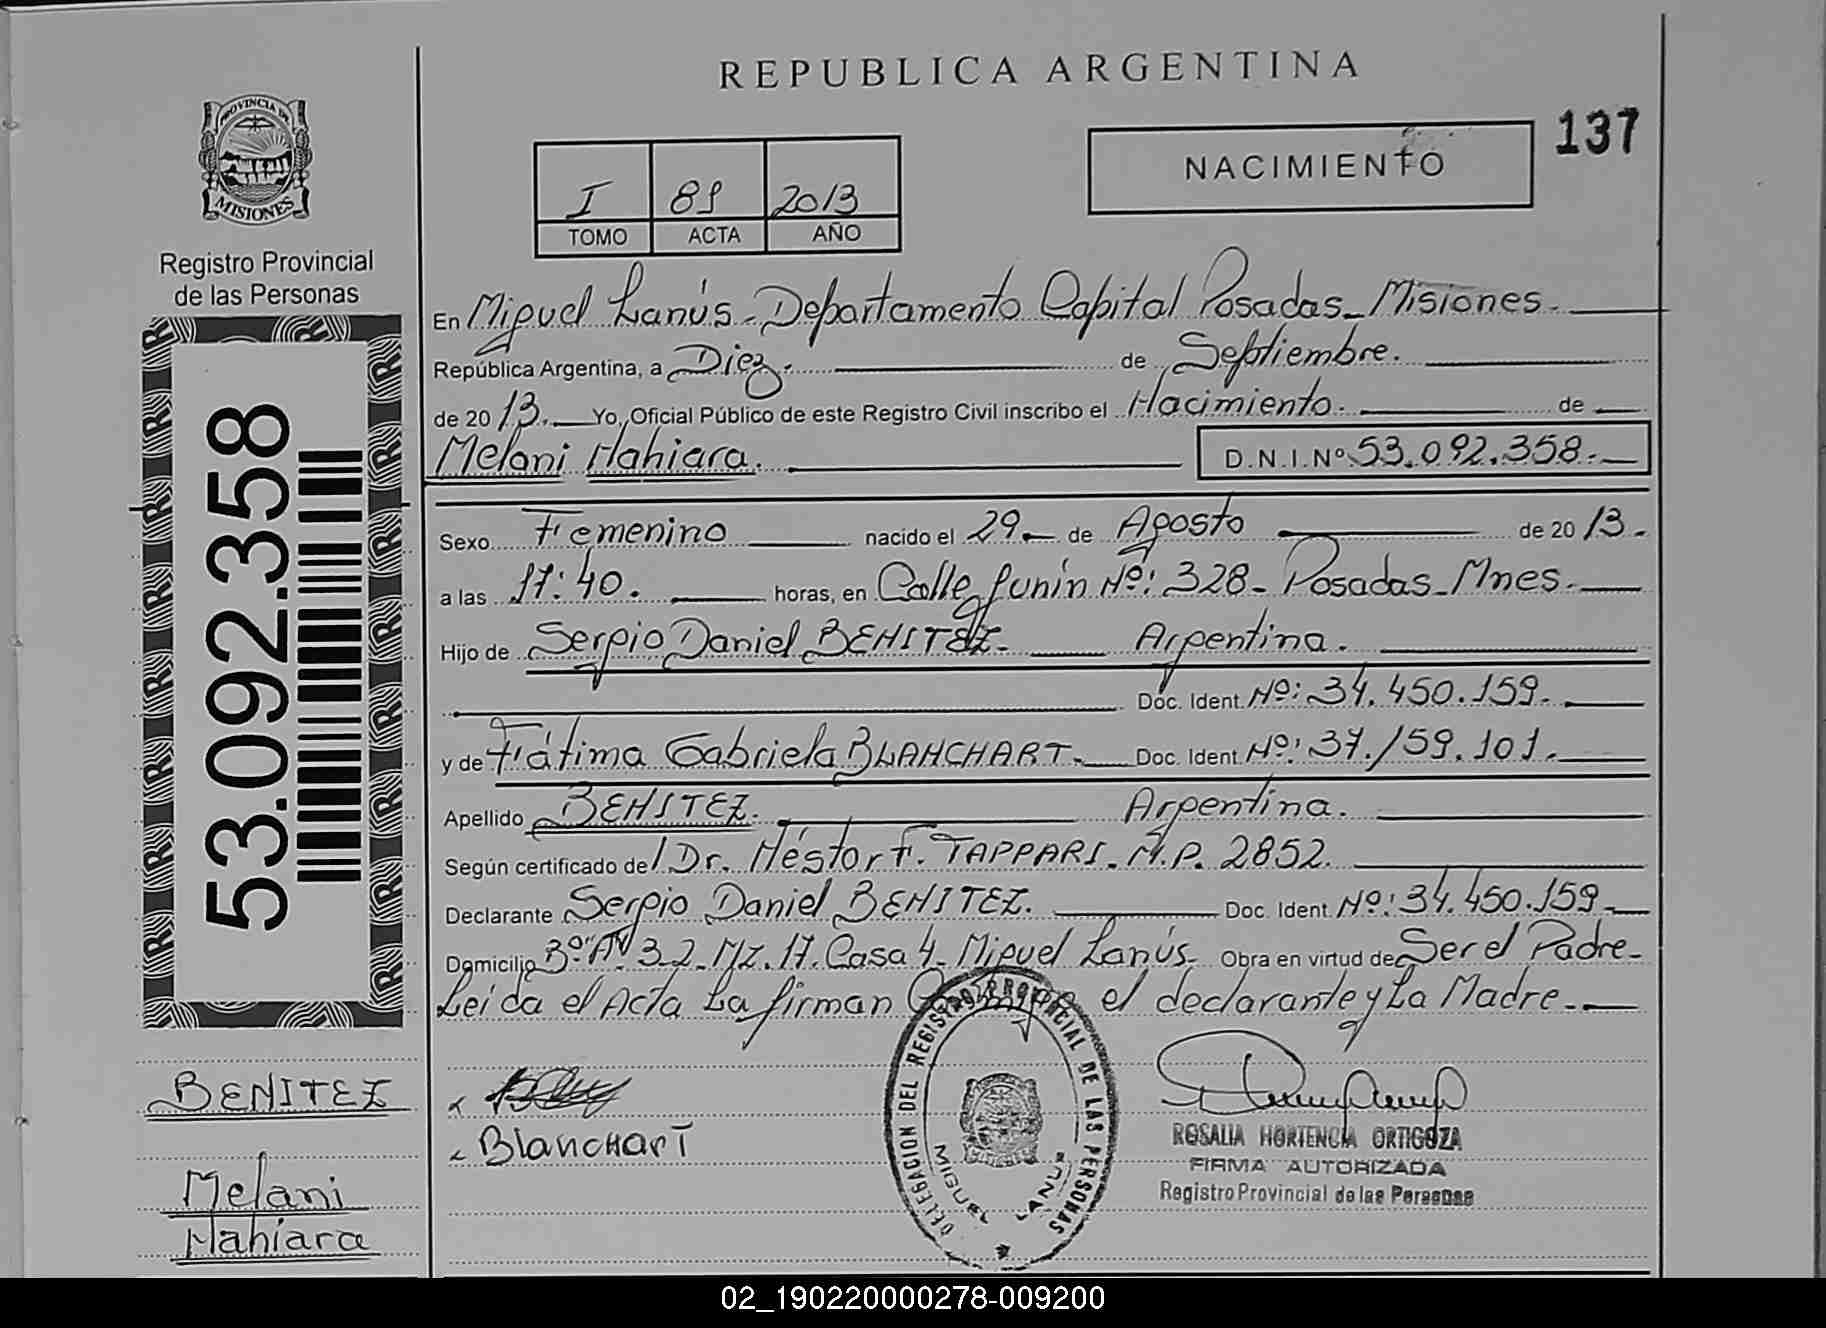 REPUBLICA ARGENTINA
137
NACIMIENTO
I 89 2013
TOMO ACTA AÑO
PROVINCIA DE
MISIONES
Registro Provincial
de las Personas
53.092.358
En Miguel Lanús - Departamento Capital Posadas - Misiones.
República Argentina, a Diez. de Septiembre.
de 2013. Yo, Oficial Público de este Registro Civil inscribo el Nacimiento. de
Melani Nahiara. D.N.I.Nº 53.092.358.
Sexo Femenino nacido el 29 de Agosto de 2013.
a las 17:40. horas, en Calle Junín Nº: 328 - Posadas - Mnes.
Hijo de Sergio Daniel BENITEZ. Argentina.
Doc. Ident. Nº: 34.450.159.
y de Fátima Gabriela BLANCHART. Doc. Ident. Nº: 37.159.101.
Apellido BENITEZ. Argentina.
Según certificado del Dr. Néstor F. TAPPARI. M.P. 2852.
Declarante Sergio Daniel BENITEZ. Doc. Ident. Nº: 34.450.159
Domicilio Bº. 32. Mz. 17. Casa 4. Miguel Lanús. Obra en virtud de Ser el Padre.
Leída el Acta La firman Conmigo el declarante y La Madre.
Blanchart
DELEGACION DEL REGISTRO PROVINCIAL DE LAS PERSONAS
MIGUEL LANUS
ROSALIA HORTENCIA ORTIGOZA
FIRMA AUTORIZADA
Registro Provincial de las Personas
BENITEZ
Melani
Nahiara
02_190220000278-009200